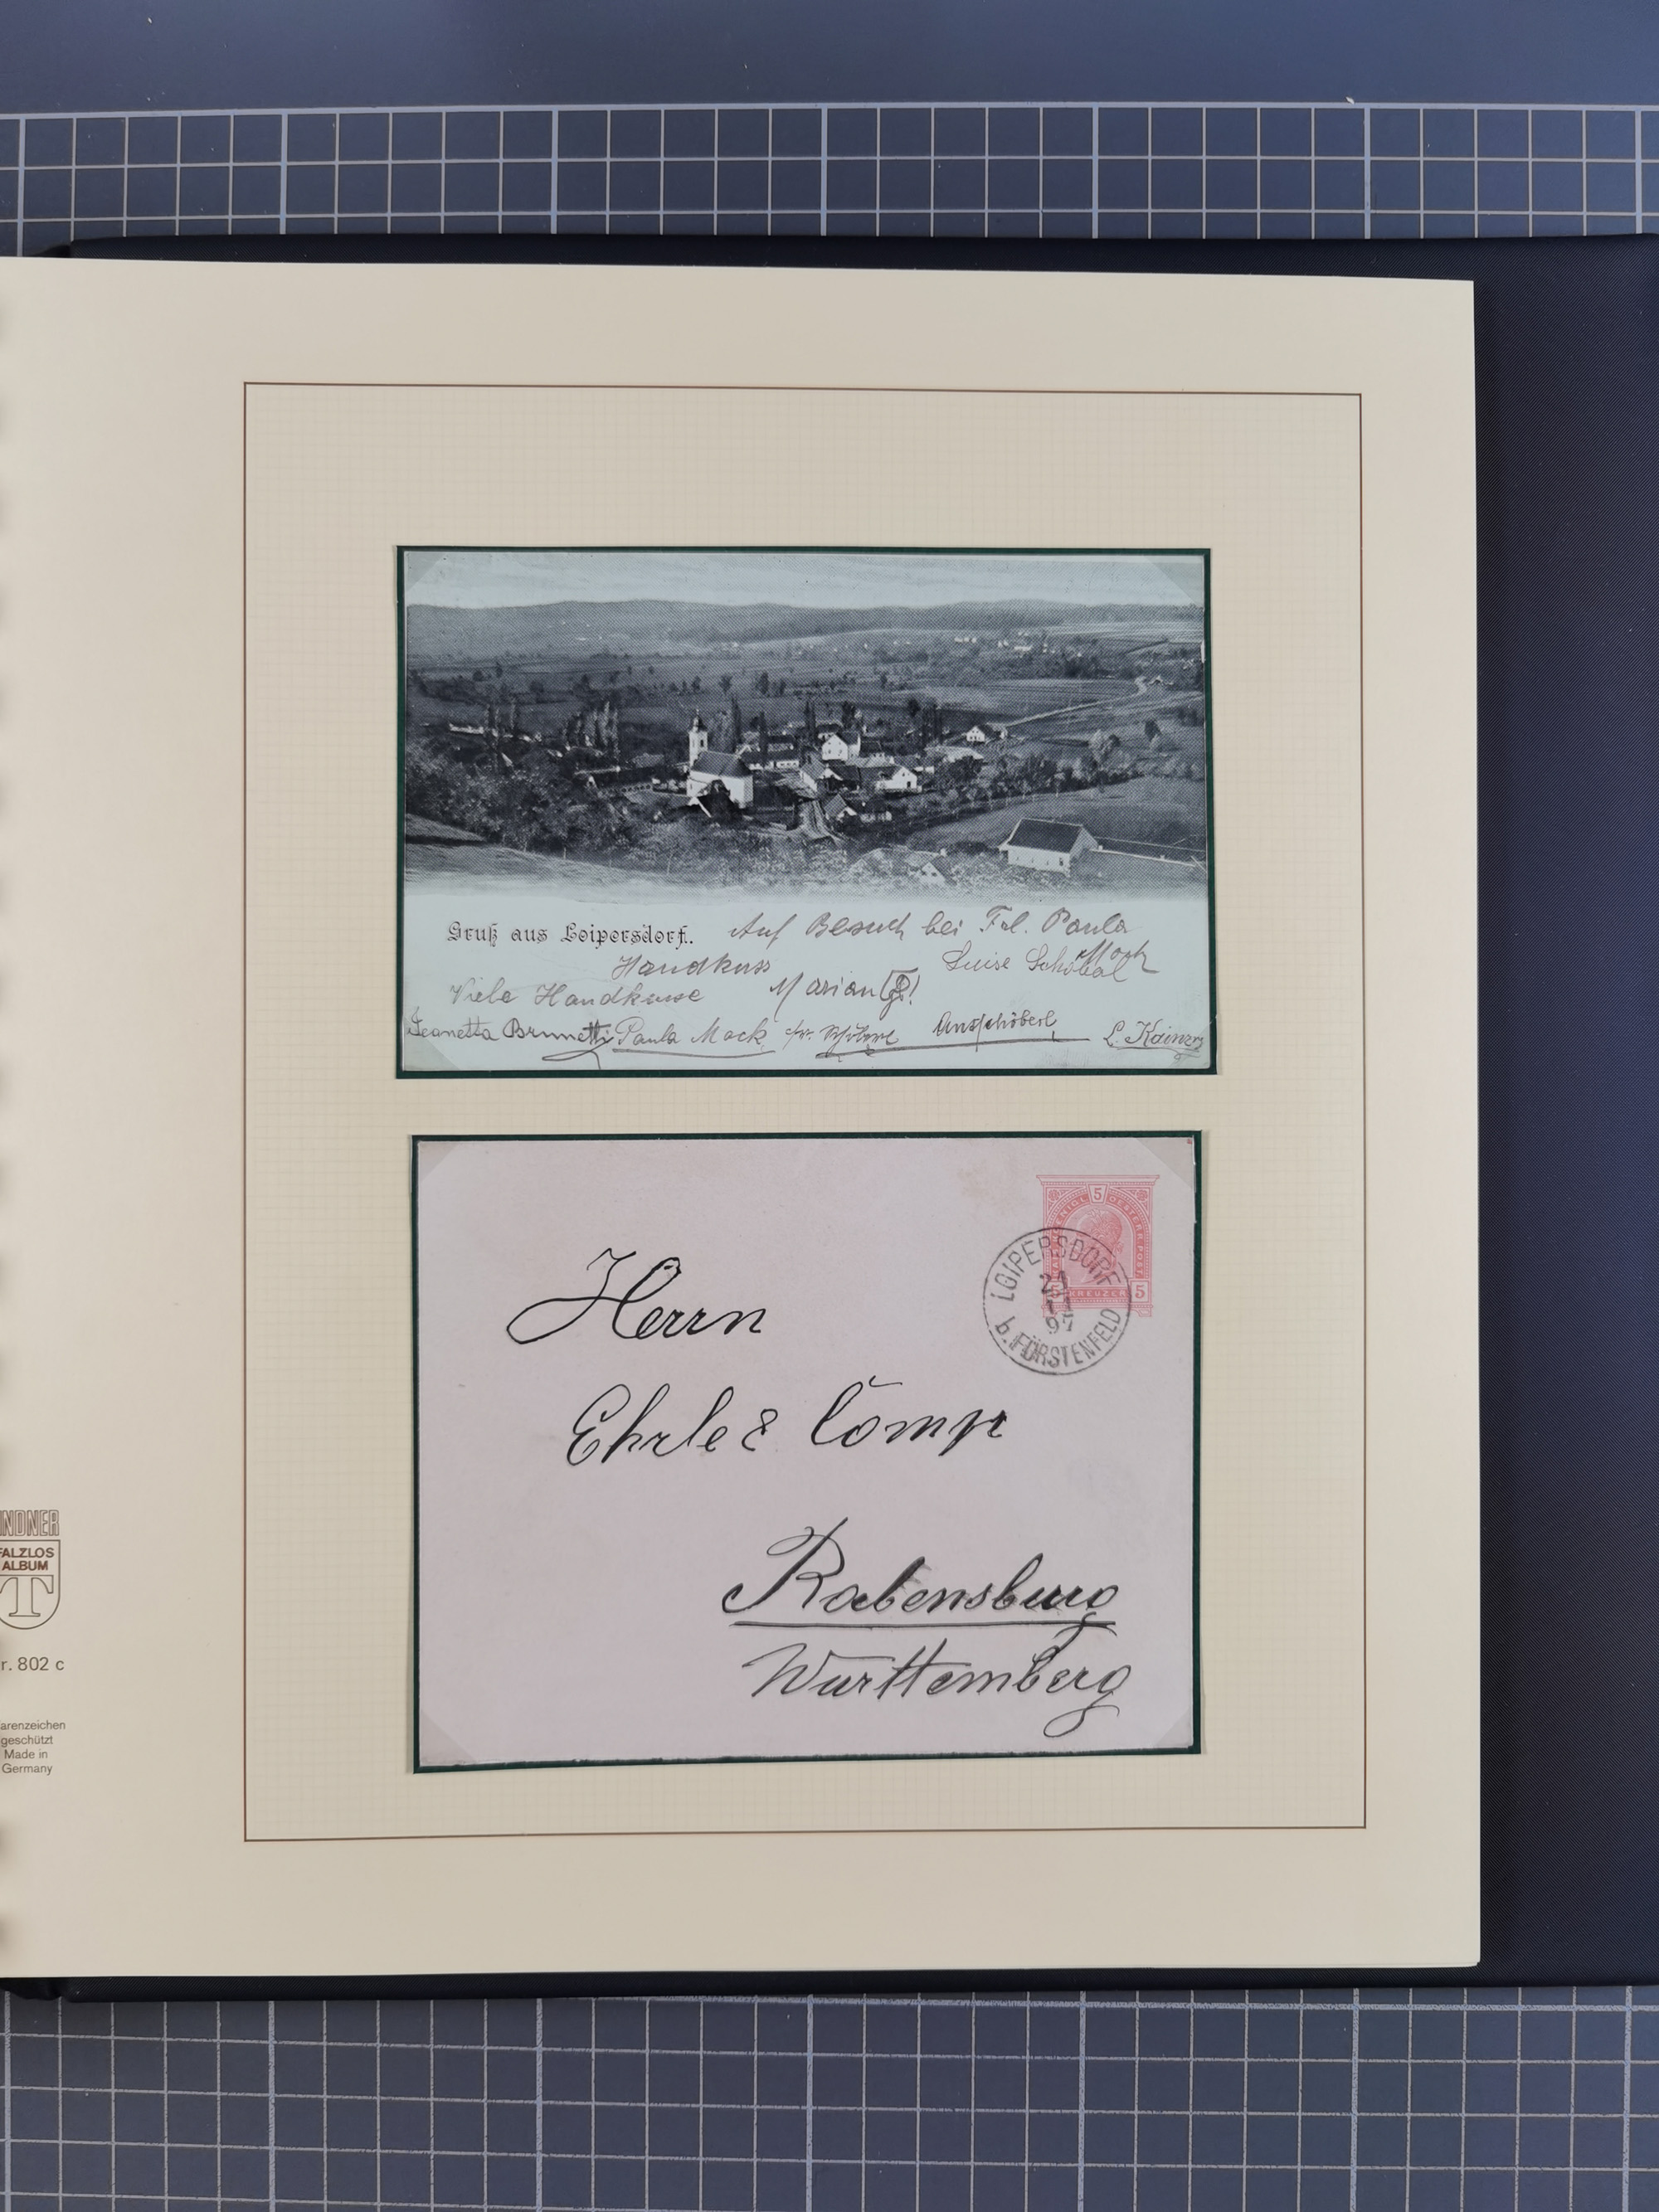 Gruß aus Loipersdorf.
Auf Besuch bei Frl. Paula
Mock
Handkuss
Luise Schöbal
Viele Handkusse
Marian
Jeanetta Brunetti
Paula Mock
L. Kainz
5
5
KREUZER
LOIPERSDORF
b. FÜRSTENFELD
Herrn
Ehrle & Comp
Rabensburg
Württemberg
INDNER
FALZLOS
ALBUM
T
r. 802 c
arenzeichen
geschützt
Made in
Germany